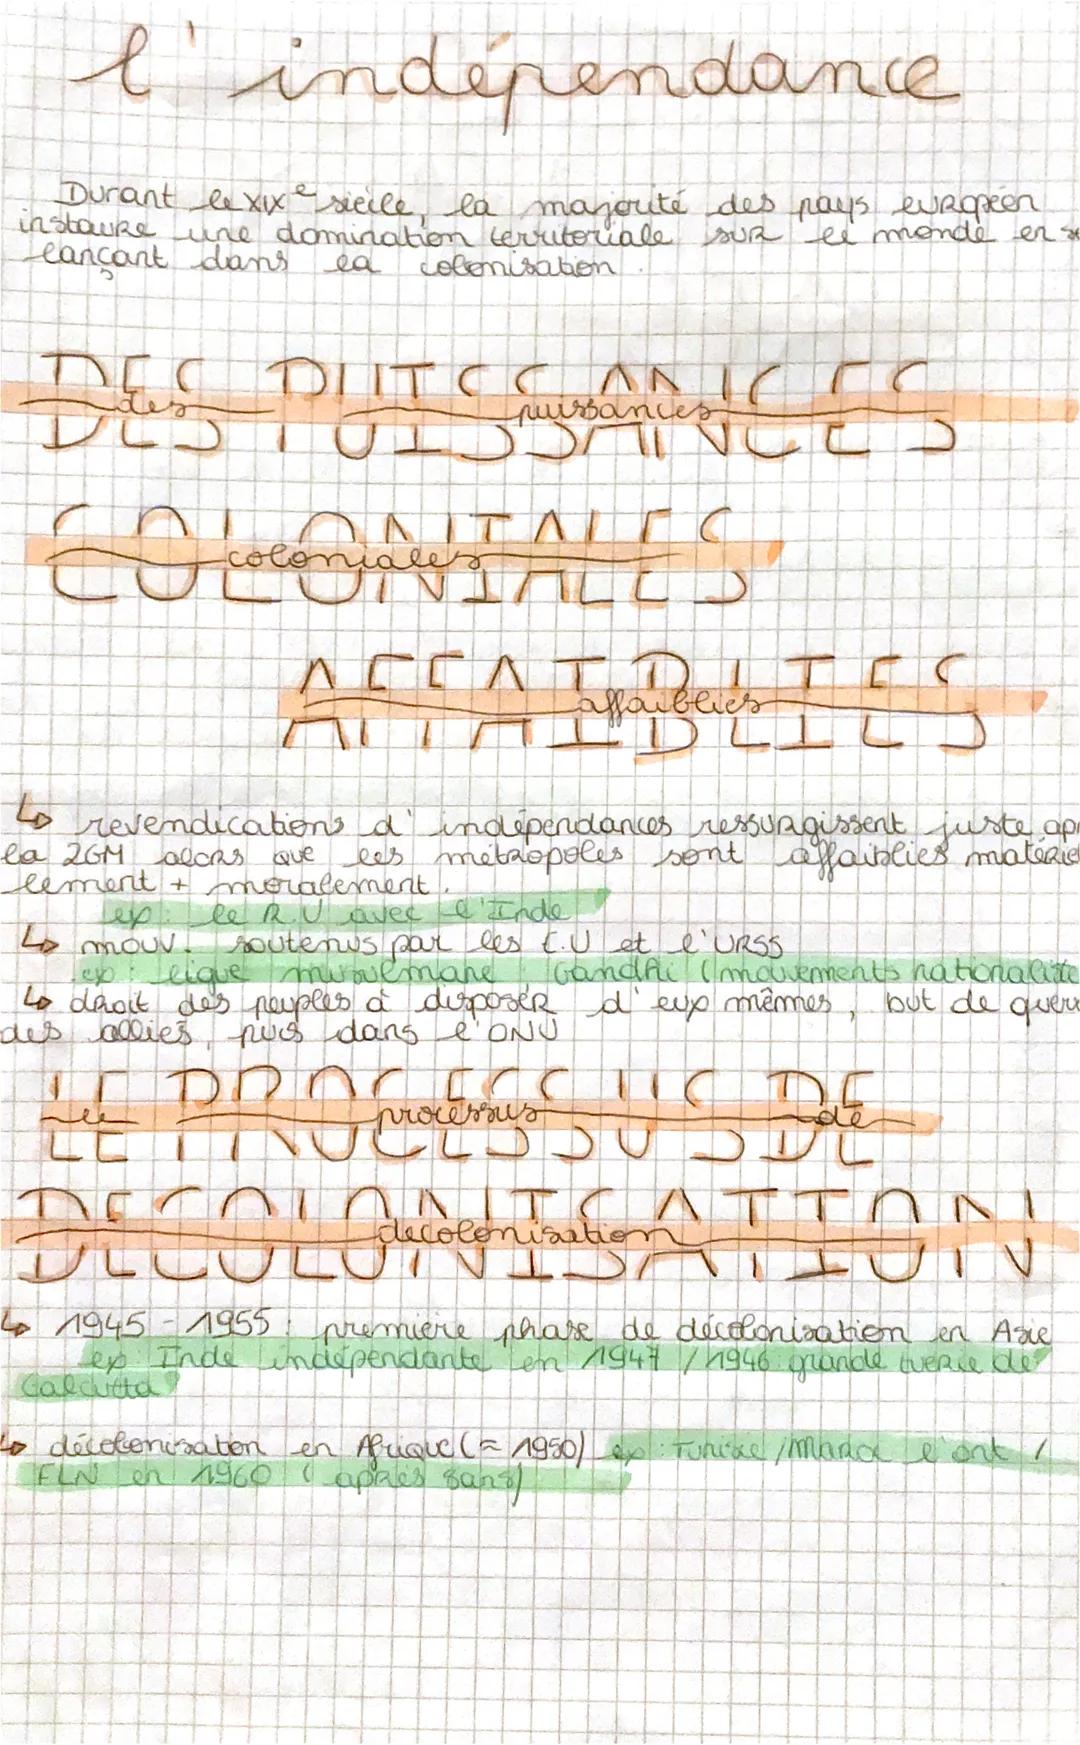 l'indépendance
Durant le XIXe siècle, la majorité des pays européen
instaure une domination territoriale sur le monde en se
lançant dans la colonisation.
DES PUISSANCES
des puissances
COLONIALES
coloniales
AFFAIBLIES
affaiblies
↳ revendications d'indépendances ressurgissent juste apr
la 2GM alors que les métropoles sont affaiblies matériel
lement + moralement.
ex: le R.U avec l'Inde
↳ mouv. soutenus par les E.U et l'URSS
ex: ligue musulmane Gandhi (mouvements nationaliste
↳ droit des peuples à disposer d'eux mêmes, but de guerr
des alliés, puis dans l'ONU
LE PROCESSUS DE
le processus de
DECOLONISATION
decolonisation
↳ 1945 - 1955: première phase de décolonisation en Asie
ex: Inde indépendante en 1947 / 1946 grande tuerie de
Calcutta
↳ décolonisation en Afrique (≈ 1950) ex: Tunisie/Maroc l'ont /
FLN en 1960 (après 8ans)